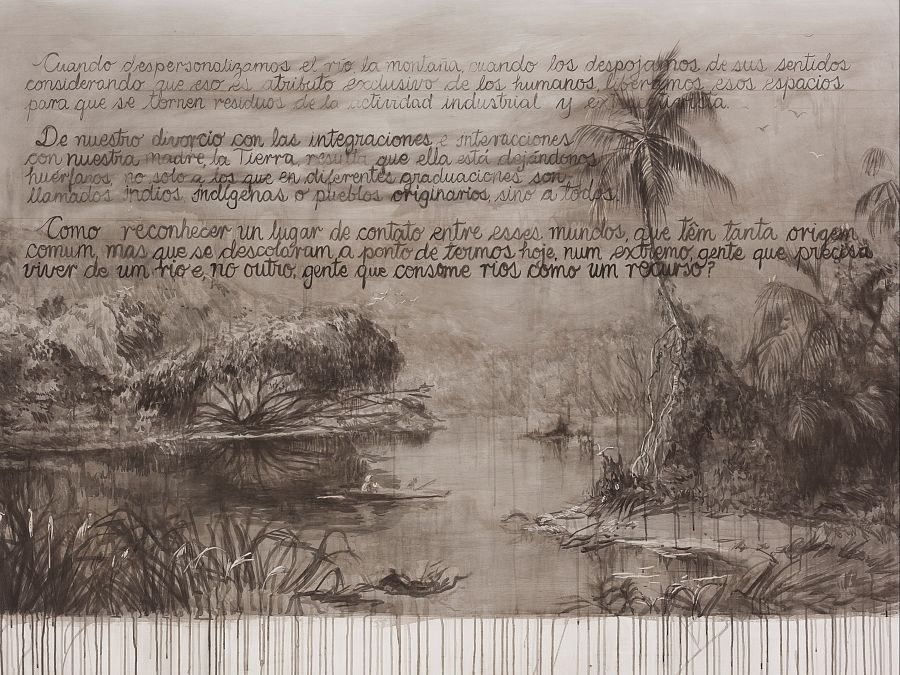 Cuando despersonalizamos el río la montaña, cuando los despojamos de sus sentidos
considerando que eso es atributo exclusivo de los humanos, liberamos esos espacios
para que se tornen residuos de la actividad industrial y extractivista.
De nuestro divorcio con las integraciones e interacciones
con nuestra madre, la Tierra, resulta que ella está dejándonos
huérfanos, no solo a los que en diferentes graduaciones son
llamados indios, indígenas o pueblos originarios, sino a todos.
Como reconhecer um lugar de contato entre esses mundos, que têm tanta origem
comum, mas que se descolaram a ponto de termos hoje, num extremo, gente que precisa
viver de um rio e, no outro, gente que consome rios como um recurso?